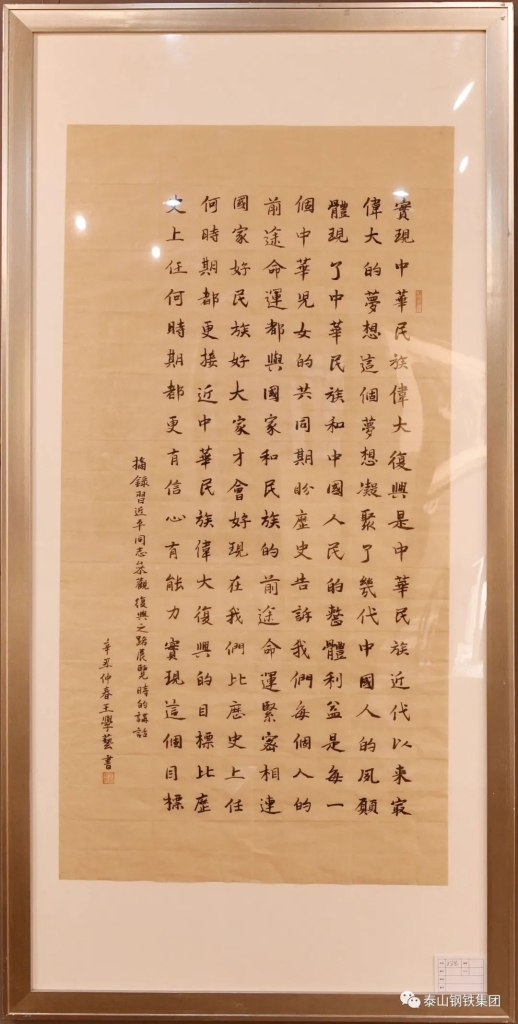 實現中華民族偉大復興是中華民族近代以來冣
偉大的夢想這個夢想凝聚了幾代中國人的夙願
體現了中華民族和中國人民的整體利益是每一
個中華兒女的共同期盼歷史告訴我們每個人的
前途命運都與國家和民族的前途命運緊密相連
國家好民族好大家才會好現在我們比歷史上任
何時期都更接近中華民族偉大復興的目標比歷
史上任何時期都更有信心有能力實現這個目標
摘錄習近平同志叅觀復興之路展覽時的講話
辛丑仲春王學藝書
泰山钢铁集团